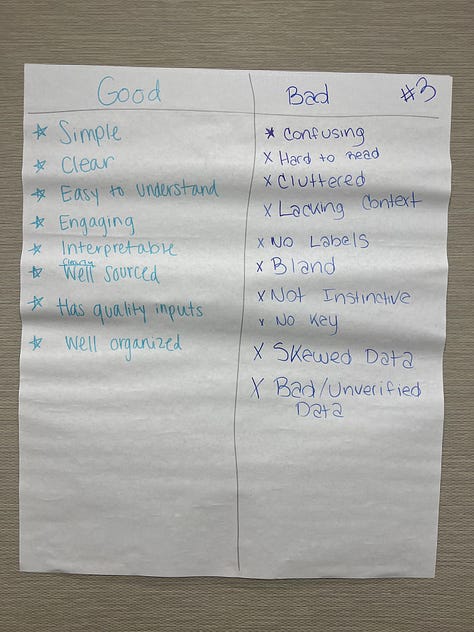 Good
Simple
Clear
Easy to understand
Engaging
Interpretable
clearly
Well Sourced
Has quality inputs
Well organized
Bad
#3
Confusing
Hard to Read
Cluttered
Lacking Context
No Labels
Bland
Not Instinctive
No Key
Skewed Data
Bad/Unverified
Data